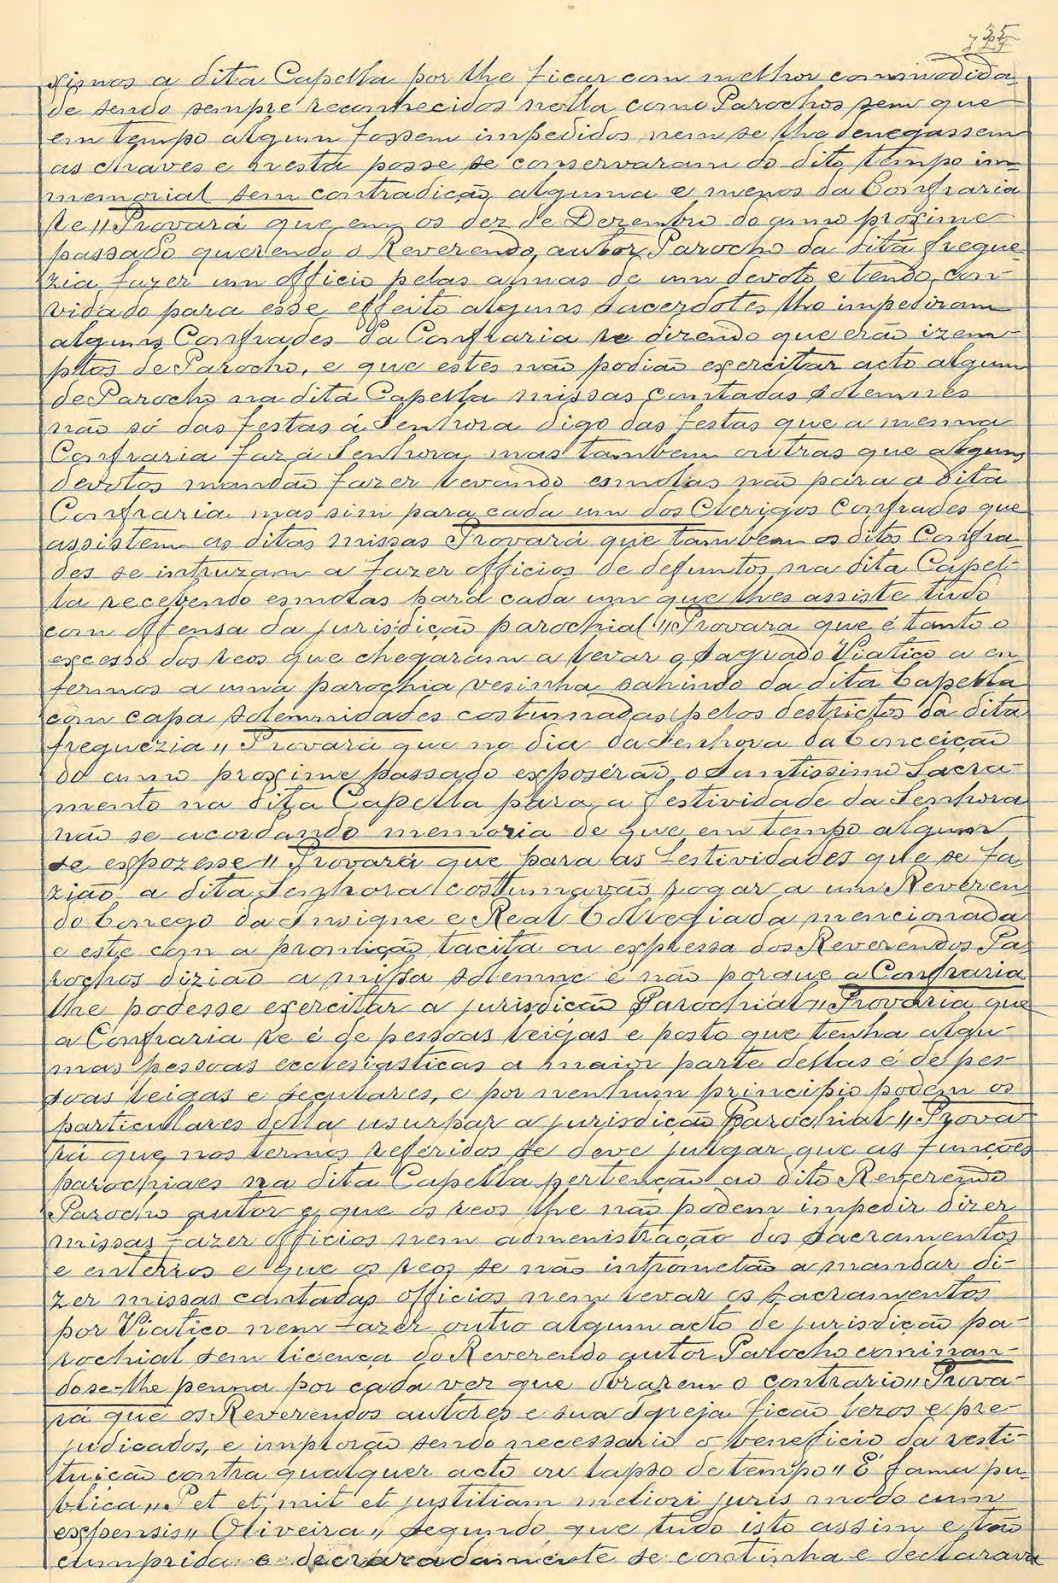 35
xismos a dita Capella por lhe ficar com melhor commodida-
de sendo sempre reconhecidos nella como Parochos sem que
em tempo algum fossem impedidos nem se lhe denegassem
as chaves e nesta posse se conservaram do dito tempo im-
memorial sem contradição alguma e menos da Confraria
re" Provará que em os dez de Dezembro do anno proximo
passado querendo o Reverendo autor Parocho da dita fregue-
zia fazer um officio pelas almas de um devoto e tendo con-
vidado para esse effeito alguns sacerdotes lho impediram
alguns Confrades da Confraria re dizendo que erão izem-
ptos de Parocho, e que estes não podião exercitar acto algum
de Parocho na dita Capella missas cantadas solemnes
não só das festas á Senhora digo das festas que a mesma
Confraria faz á Senhora mas tambem outras que alguns
devotos mandão fazer levando esmolas não para a dita
Confraria mas sim para cada um dos Clerigos Confrades que
assistem as ditas missas Provará que tambem os ditos Confra-
des se intruzam a fazer officios de defuntos na dita Capel-
la recebendo esmolas para cada um que lhes assiste tudo
com offensa da jurisdição parochial" Provara que é tanto o
excesso dos reos que chegaram a levar o Sagrado Viatico a en-
fermos a uma parochia vesinha sahindo da dita Capella
com capa solemnidades costumadas pelos destrictos da dita
freguezia" Provará que no dia da Senhora da Conceição
do anno proximo passado exposérão o Santissimo Sacra-
mento na dita Capella para a festividade da Senhora
não se acordando memoria de que em tempo algum
se expozesse" Provará que para as festividades que se fa-
zião a dita Senhora costumavão rogar a um Reveren-
do Conego da Insigne e Real Collegiada mencionada
e este com a promição tacita ou expressa dos Reverendos Pa-
rochos dizião a missa solemne e não porque a Confraria
lhe podesse exercitar a jurisdição Parochial" Provaria que
a Confraria re é de pessoas leigas e posto que tenha algu-
mas pessoas ecclesiasticas a maior parte dellas é de pes-
soas leigas e seculares, e por nenhum principio podem os
particulares della usurpar a jurisdição Parochial" Prova-
rá que nos termos referidos se deve julgar que as funções
parochiaes na dita Capella pertenção ao dito Reverendo
Parocho autor e que os reos lhe não podem impedir dizer
missas fazer officios nem admenistração dos Sacramentos
e enterros e que os reos se não intrometão a mandar di-
zer missas cantadas officios nem levar os Sacramentos
por Viatico nem fazer outro algum acto de jurisdição pa-
rochial sem licença do Reverendo autor Parocho cominan-
dose-lhe penna por cada vez que obrarem o contrario" Prova-
rá que os Reverendos autores e sua Igreja ficão lezos e pre-
judicados, e implorão sendo necessario o beneficio da resti-
tuição contra qualquer acto ou lapso de tempo" É fama pu-
blica" Pet et; mit et justitiam meliori juris modo cum
expensis" Oliveira" Segundo que tudo isto assim e tão
cumprida e decraradamente se continha e declarava